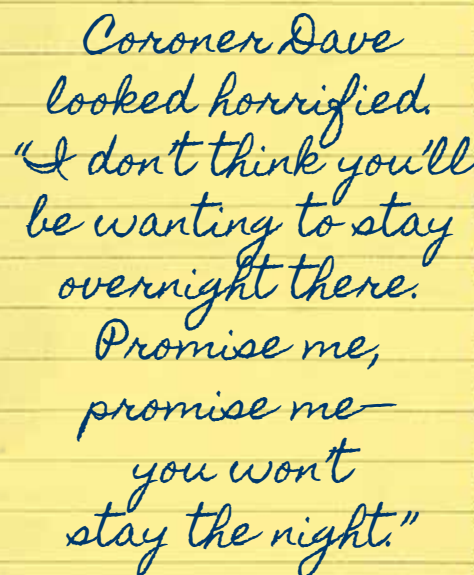 Coroner Dave
looked horrified.
“I don’t think you’ll
be wanting to stay
overnight there.
Promise me,
promise me—
you won’t
stay the night.”